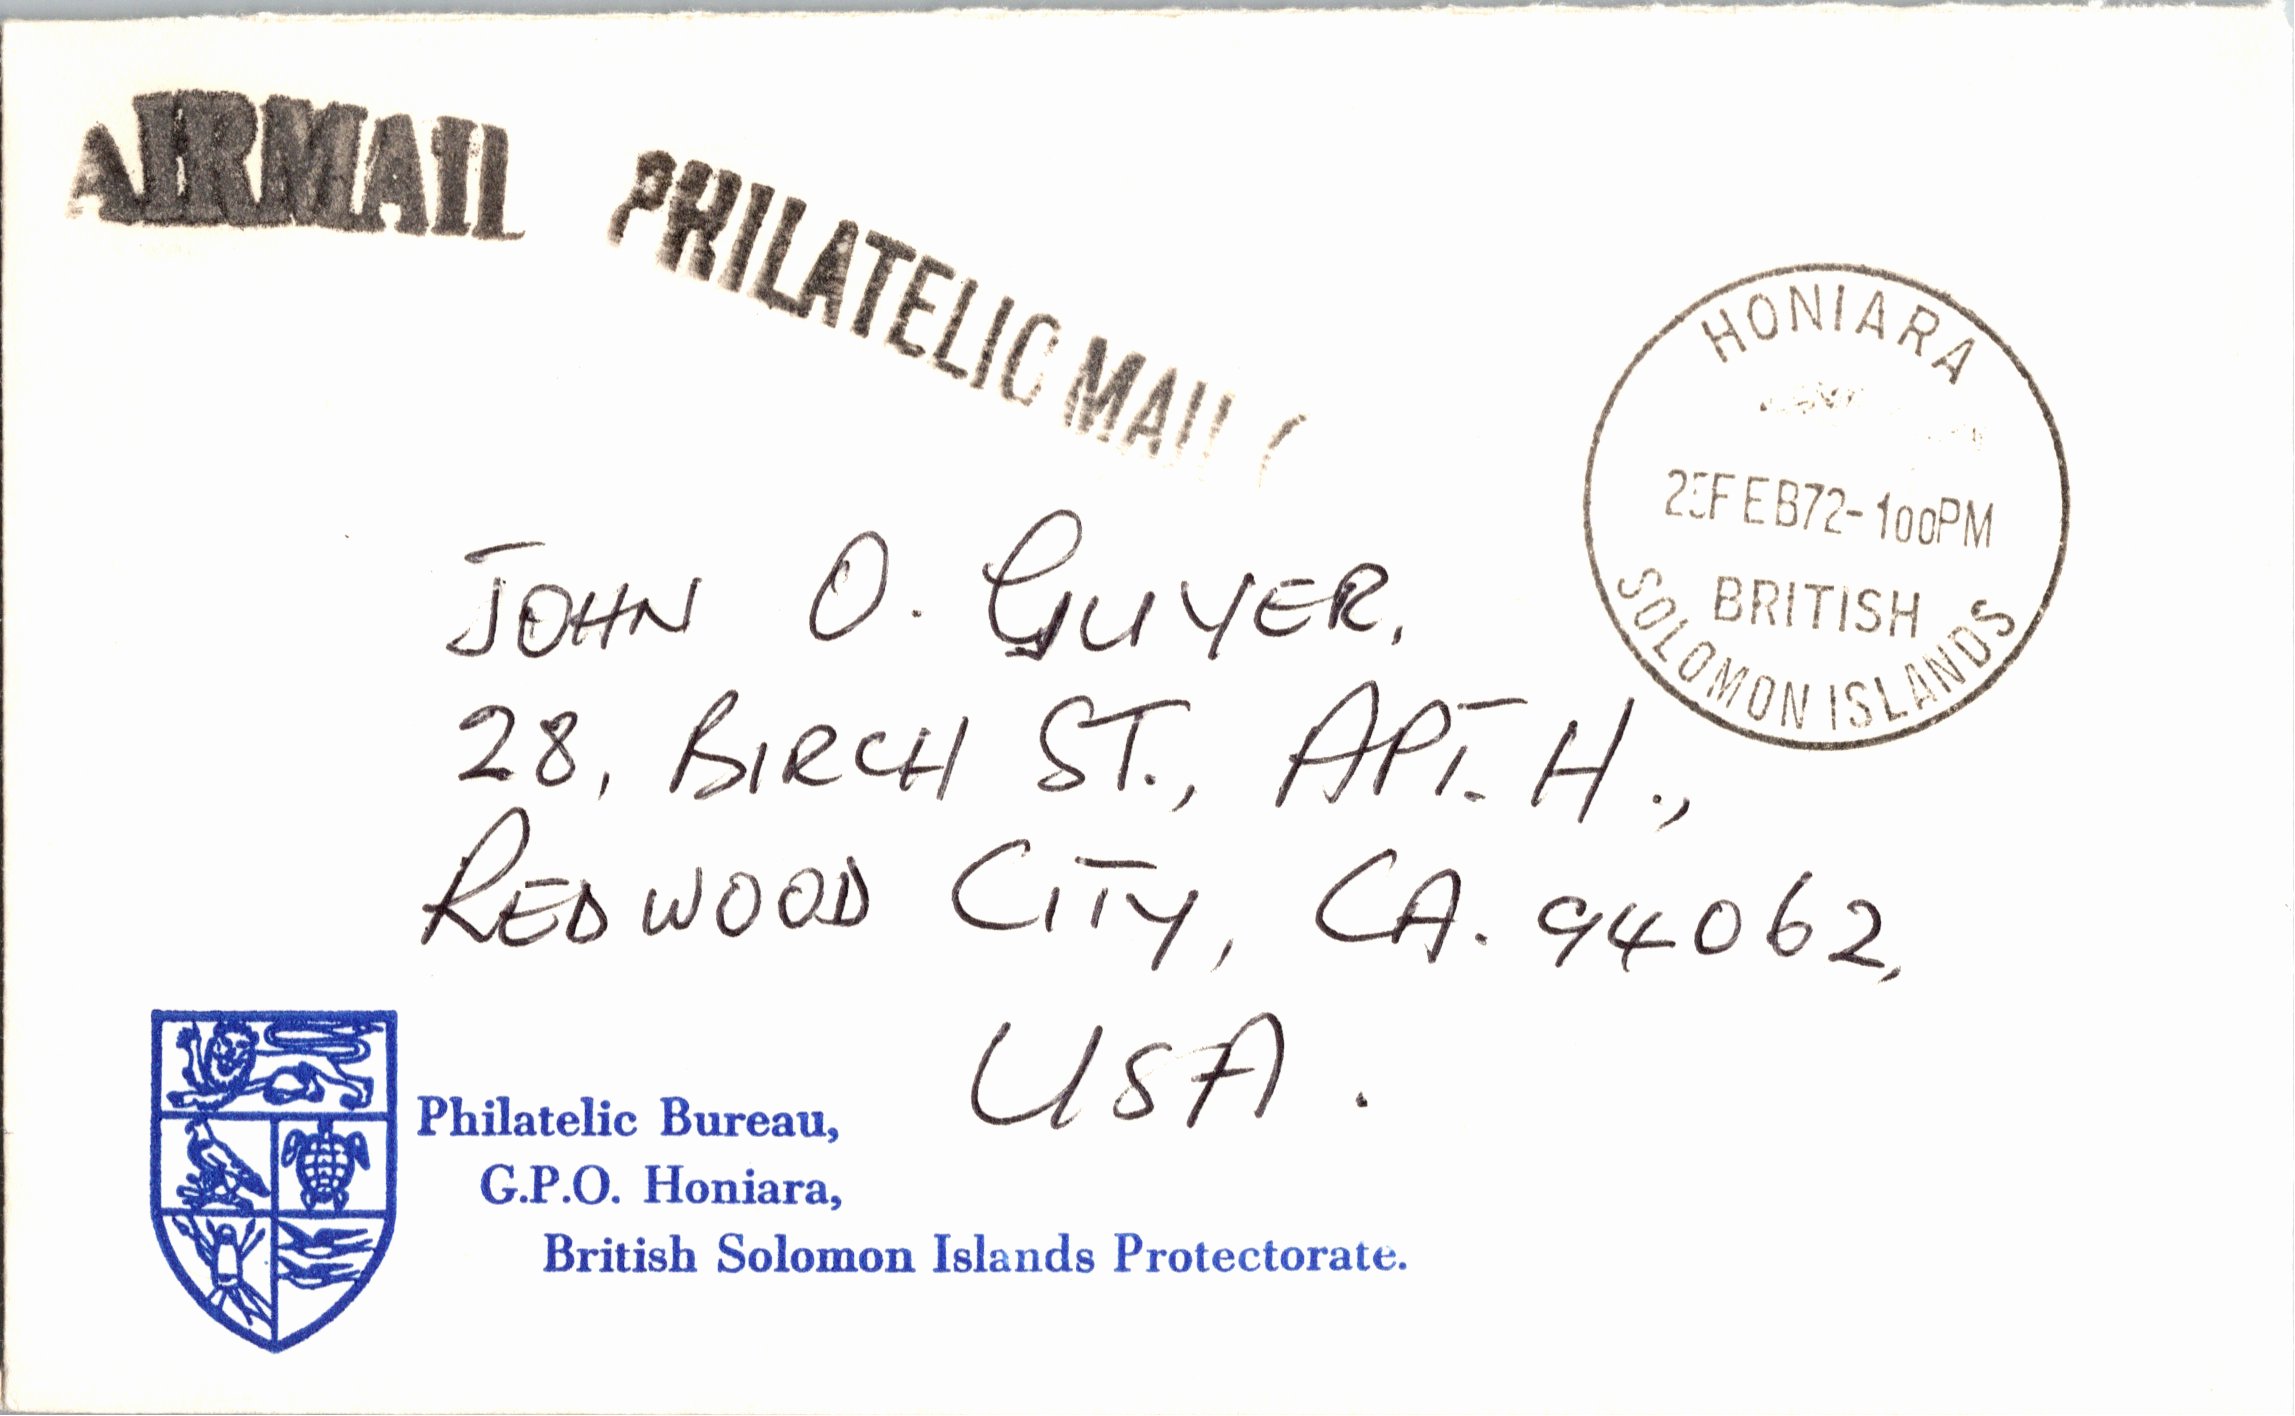 AIRMAIL
PHILATELIC MAIL
HONIARA
25FEB72-100PM
BRITISH
SOLOMON ISLANDS
JOHN O. GUYER,
28, BIRCH ST., APT. H.,
REDWOOD CITY, CA. 94062,
USA.
Philatelic Bureau,
G.P.O. Honiara,
British Solomon Islands Protectorate.